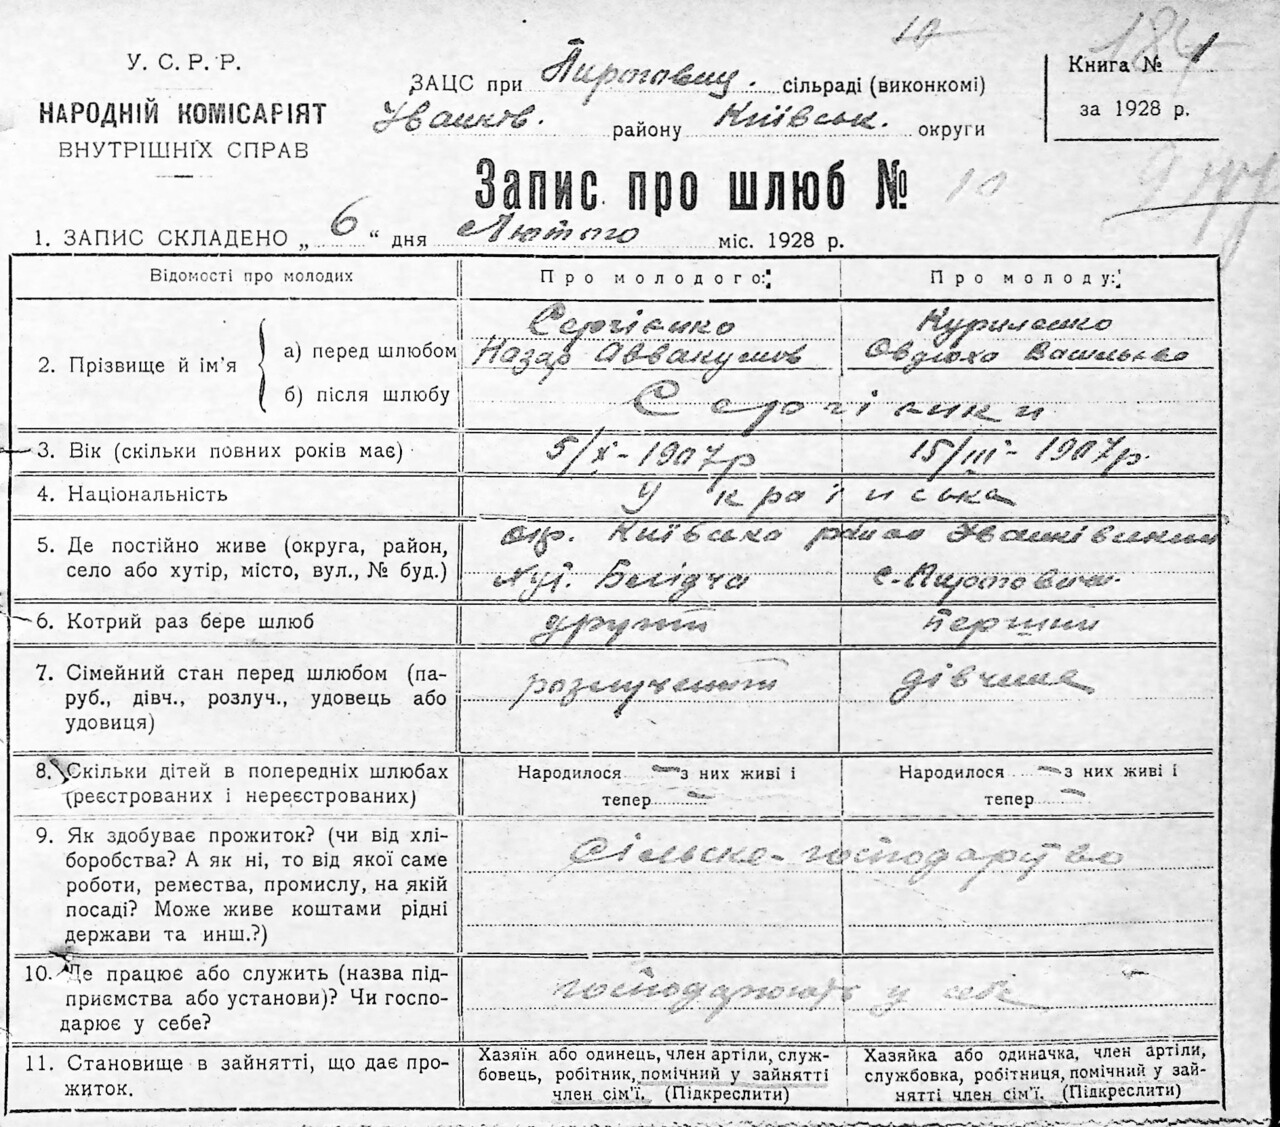 10
184
У. С. Р. Р.
НАРОДНІЙ КОМІСАРІЯТ
ВНУТРІШНІХ СПРАВ
ЗАЦС при Пироговиц. сільраді (виконкомі)
Іванків. району Київськ. округи
Книга № 1
за 1928 р.
Запис про шлюб № 10
1. ЗАПИС СКЛАДЕНО „ 6 “ дня Лютого міс. 1928 р.
Відомості про молодих
Про молодого:
Про молоду:
2. Прізвище й ім'я
а) перед шлюбом
Сергієнко
Назар Аввакумов
Куриленко
Овдюха Васильєва
б) після шлюбу
Сергієнки
3. Вік (скільки повних років має)
5/X-1907р
15/III-1907р.
4. Національність
Українська
5. Де постійно живе (округа, район,
село або хутір, місто, вул., № буд.)
окр. Київсько район Іванківський
хут. Болідча
с. Пироговичі
6. Котрий раз бере шлюб
другий
перший
7. Сімейний стан перед шлюбом (па-
руб., дівч., розлуч., удовець або
удовиця)
розлучений
дівчина
8. Скільки дітей в попередніх шлюбах
(реєстрованих і нереєстрованих)
Народилося — з них живі і
тепер —
Народилося — з них живі і
тепер —
9. Як здобуває прожиток? (чи від хлі-
боробства? А як ні, то від якої саме
роботи, ремества, промислу, на якій
посаді? Може живе коштами рідні
держави та инш.?)
Сільське-господарство
10. Де працює або служить (назва під-
приємства або установи)? Чи госпо-
дарює у себе?
господарюють у себе
11. Становище в зайнятті, що дає про-
житок.
Хазяїн або одинець, член артіли, служ-
бовець, робітник, помічний у зайнятті
член сім'ї. (Підкреслити)
Хазяйка або одиначка, член артіли,
службовка, робітниця, помічний у зай-
нятті член сім'ї. (Підкреслити)